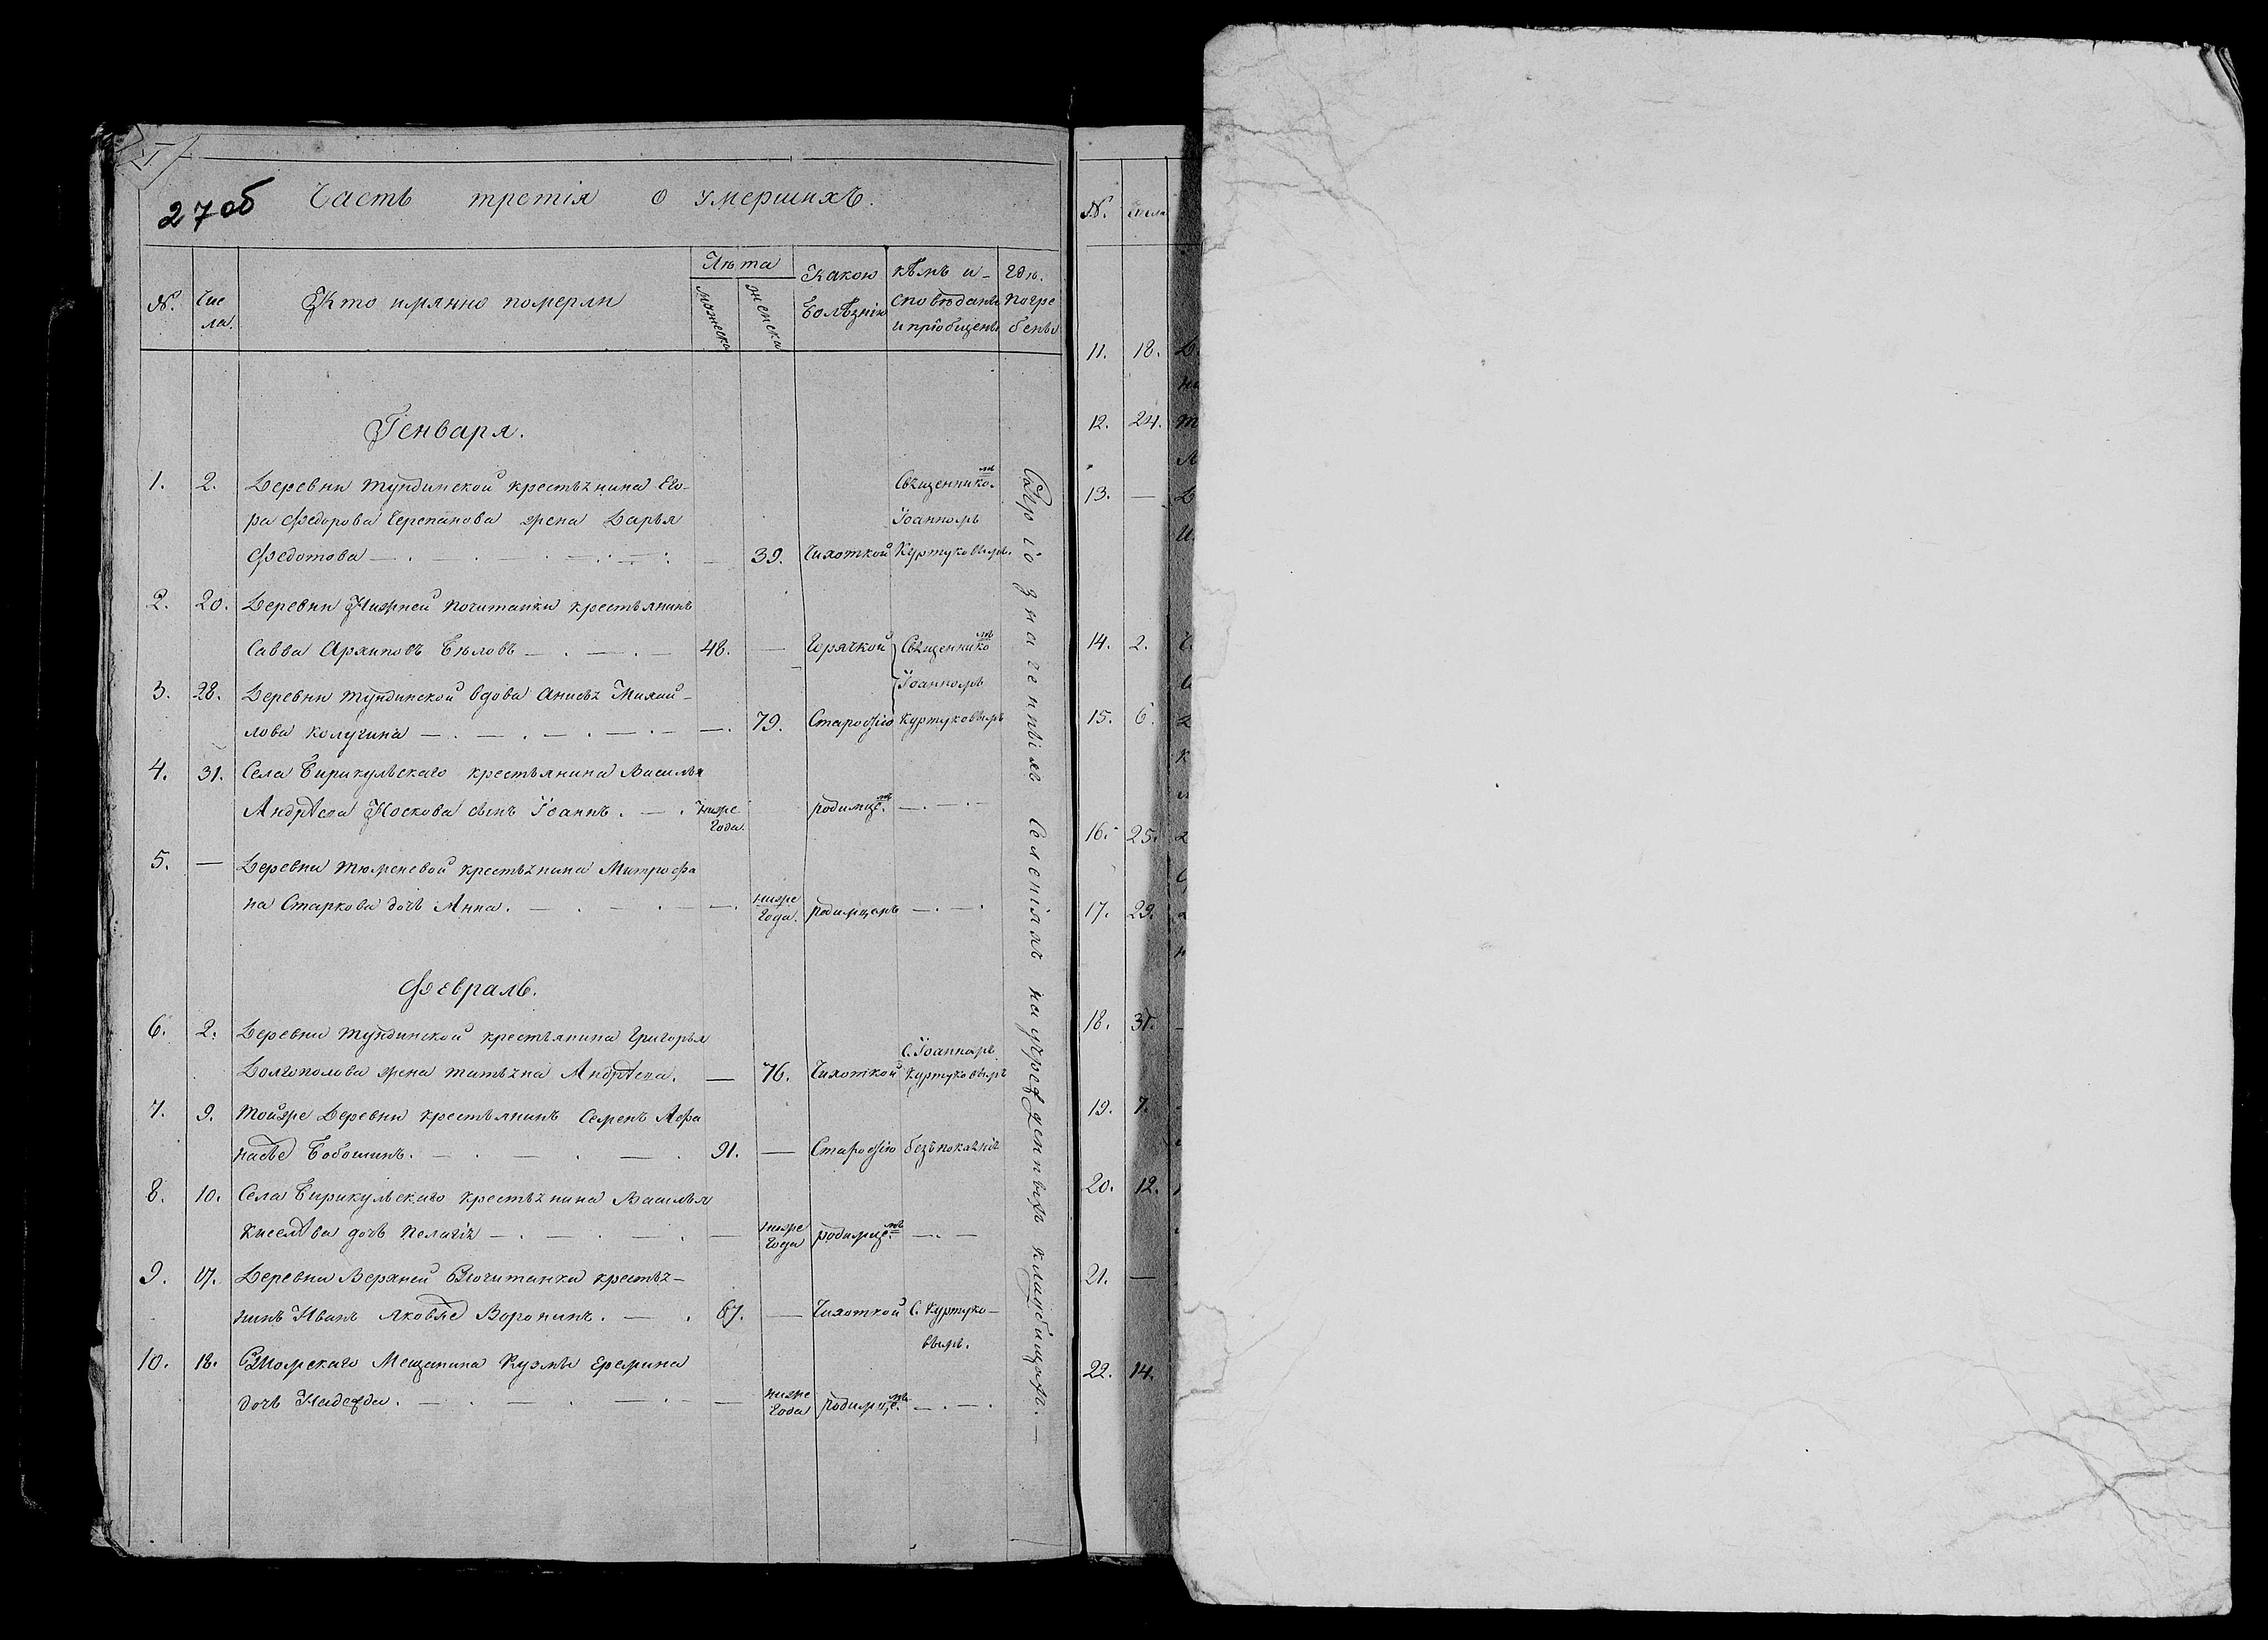 27об Часть третія о умершихъ.
№. Чис
ла.
Кто имянно померли
Лѣта
мужеска
женска
Какою
болѣзнію
кѣмъ и-
сповѣданы
и пріобщены
гдѣ.
погре
бены
Генваря.
1. 2. Деревни Тундинской крестьянина Его-
ра Федорова Черепанова жена Дарья
Федотова — 39. Чихоткой
Священникомъ
Іоанномъ
Куртуковымъ.
2. 20. Деревни Нижней Почитанки крестьянинъ
Савва Архиповъ Бѣловъ — 48. — Горячкой Священникомъ
Іоанномъ
3. 28. Деревни Тундинской вдова Анисья Михай-
лова Колугина — 79. Старостію Куртуковымъ
4. 31. Села Бирикульскаго крестьянина Василья
Андрѣева Носкова сынъ Іоаннъ. — ниже
года. родимцемъ — . —
5. — Деревни Тюменевой крестьянина Митрофа
на Старкова дочь Анна. — ниже
года. родимцомъ — . —
Февраль.
6. 2. Деревни Тундинской крестьянина Григорья
Долгополова жена Татьяна Андрѣева. — 76. Чихоткой С. Іоанномъ
Куртуковымъ
7. 9. Тойже Деревни крестьянинъ Семенъ Афа
насье Бобошинъ. — 91. — Старостію безъ покаянія
8. 10. Села Бирикульскаго крестьянина Василья
Киселѣва дочь Пелагія — ниже
года родимцемъ — . —
9. 17. Деревни Верхней Почитанки крестья-
нинъ Иванъ Яковле Воронинъ. — 67. — Чихоткой С. Куртуко-
вымъ.
10. 18. Томскаго Мещанина Кузмы Еремина
дочь Надежда. — ниже
года родимцемъ — . — .
При означенныхъ селеніяхъ на учрежденныхъ кладбищахъ. —
№. числа
11. 18.
12. 24.
13. —
14. 2.
15. 6.
16. 25.
17. 29.
18. 31.
19. 7.
20. 12.
21. —
22. 14.